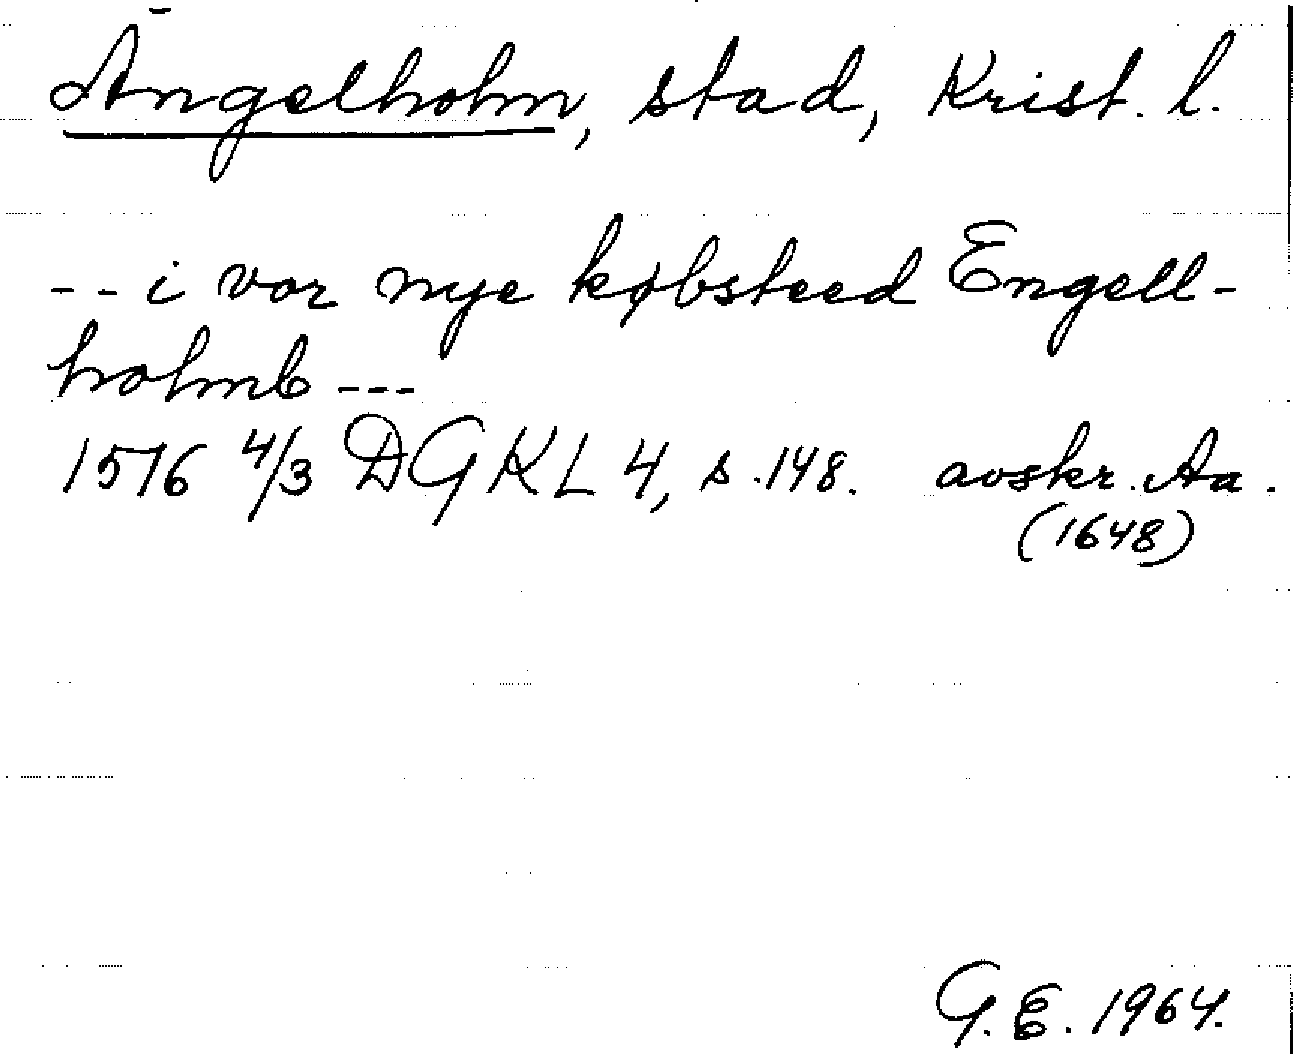 Ängelholm, stad, Krist. l.
-- i vor nye købsteed Engell-
holmb ---
1576 4/3 DGKL 4, s. 148. avskr. Aa.
(1648)
G. E. 1964.